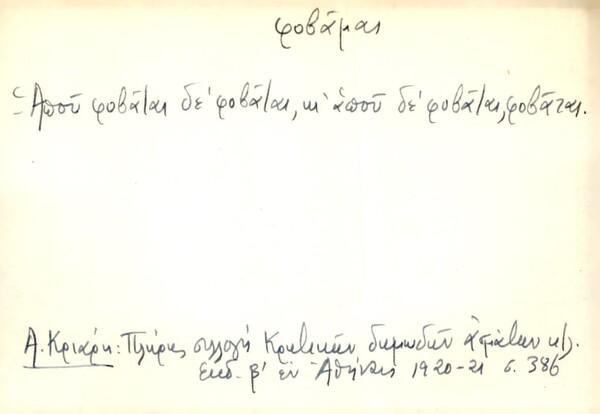 φοβᾶμαι
Ἁποῦ φοβᾶται δὲ φοβᾶται, κι ἁποῦ δὲ φοβᾶται, φοβᾶται.
Α. Κριάρη: Πλήρης συλλογή Κρητικῶν δημωδῶν ᾀσμάτων κλ.
Ἐκδ. β' ἐν Ἀθήναις 1920-21 σ. 386